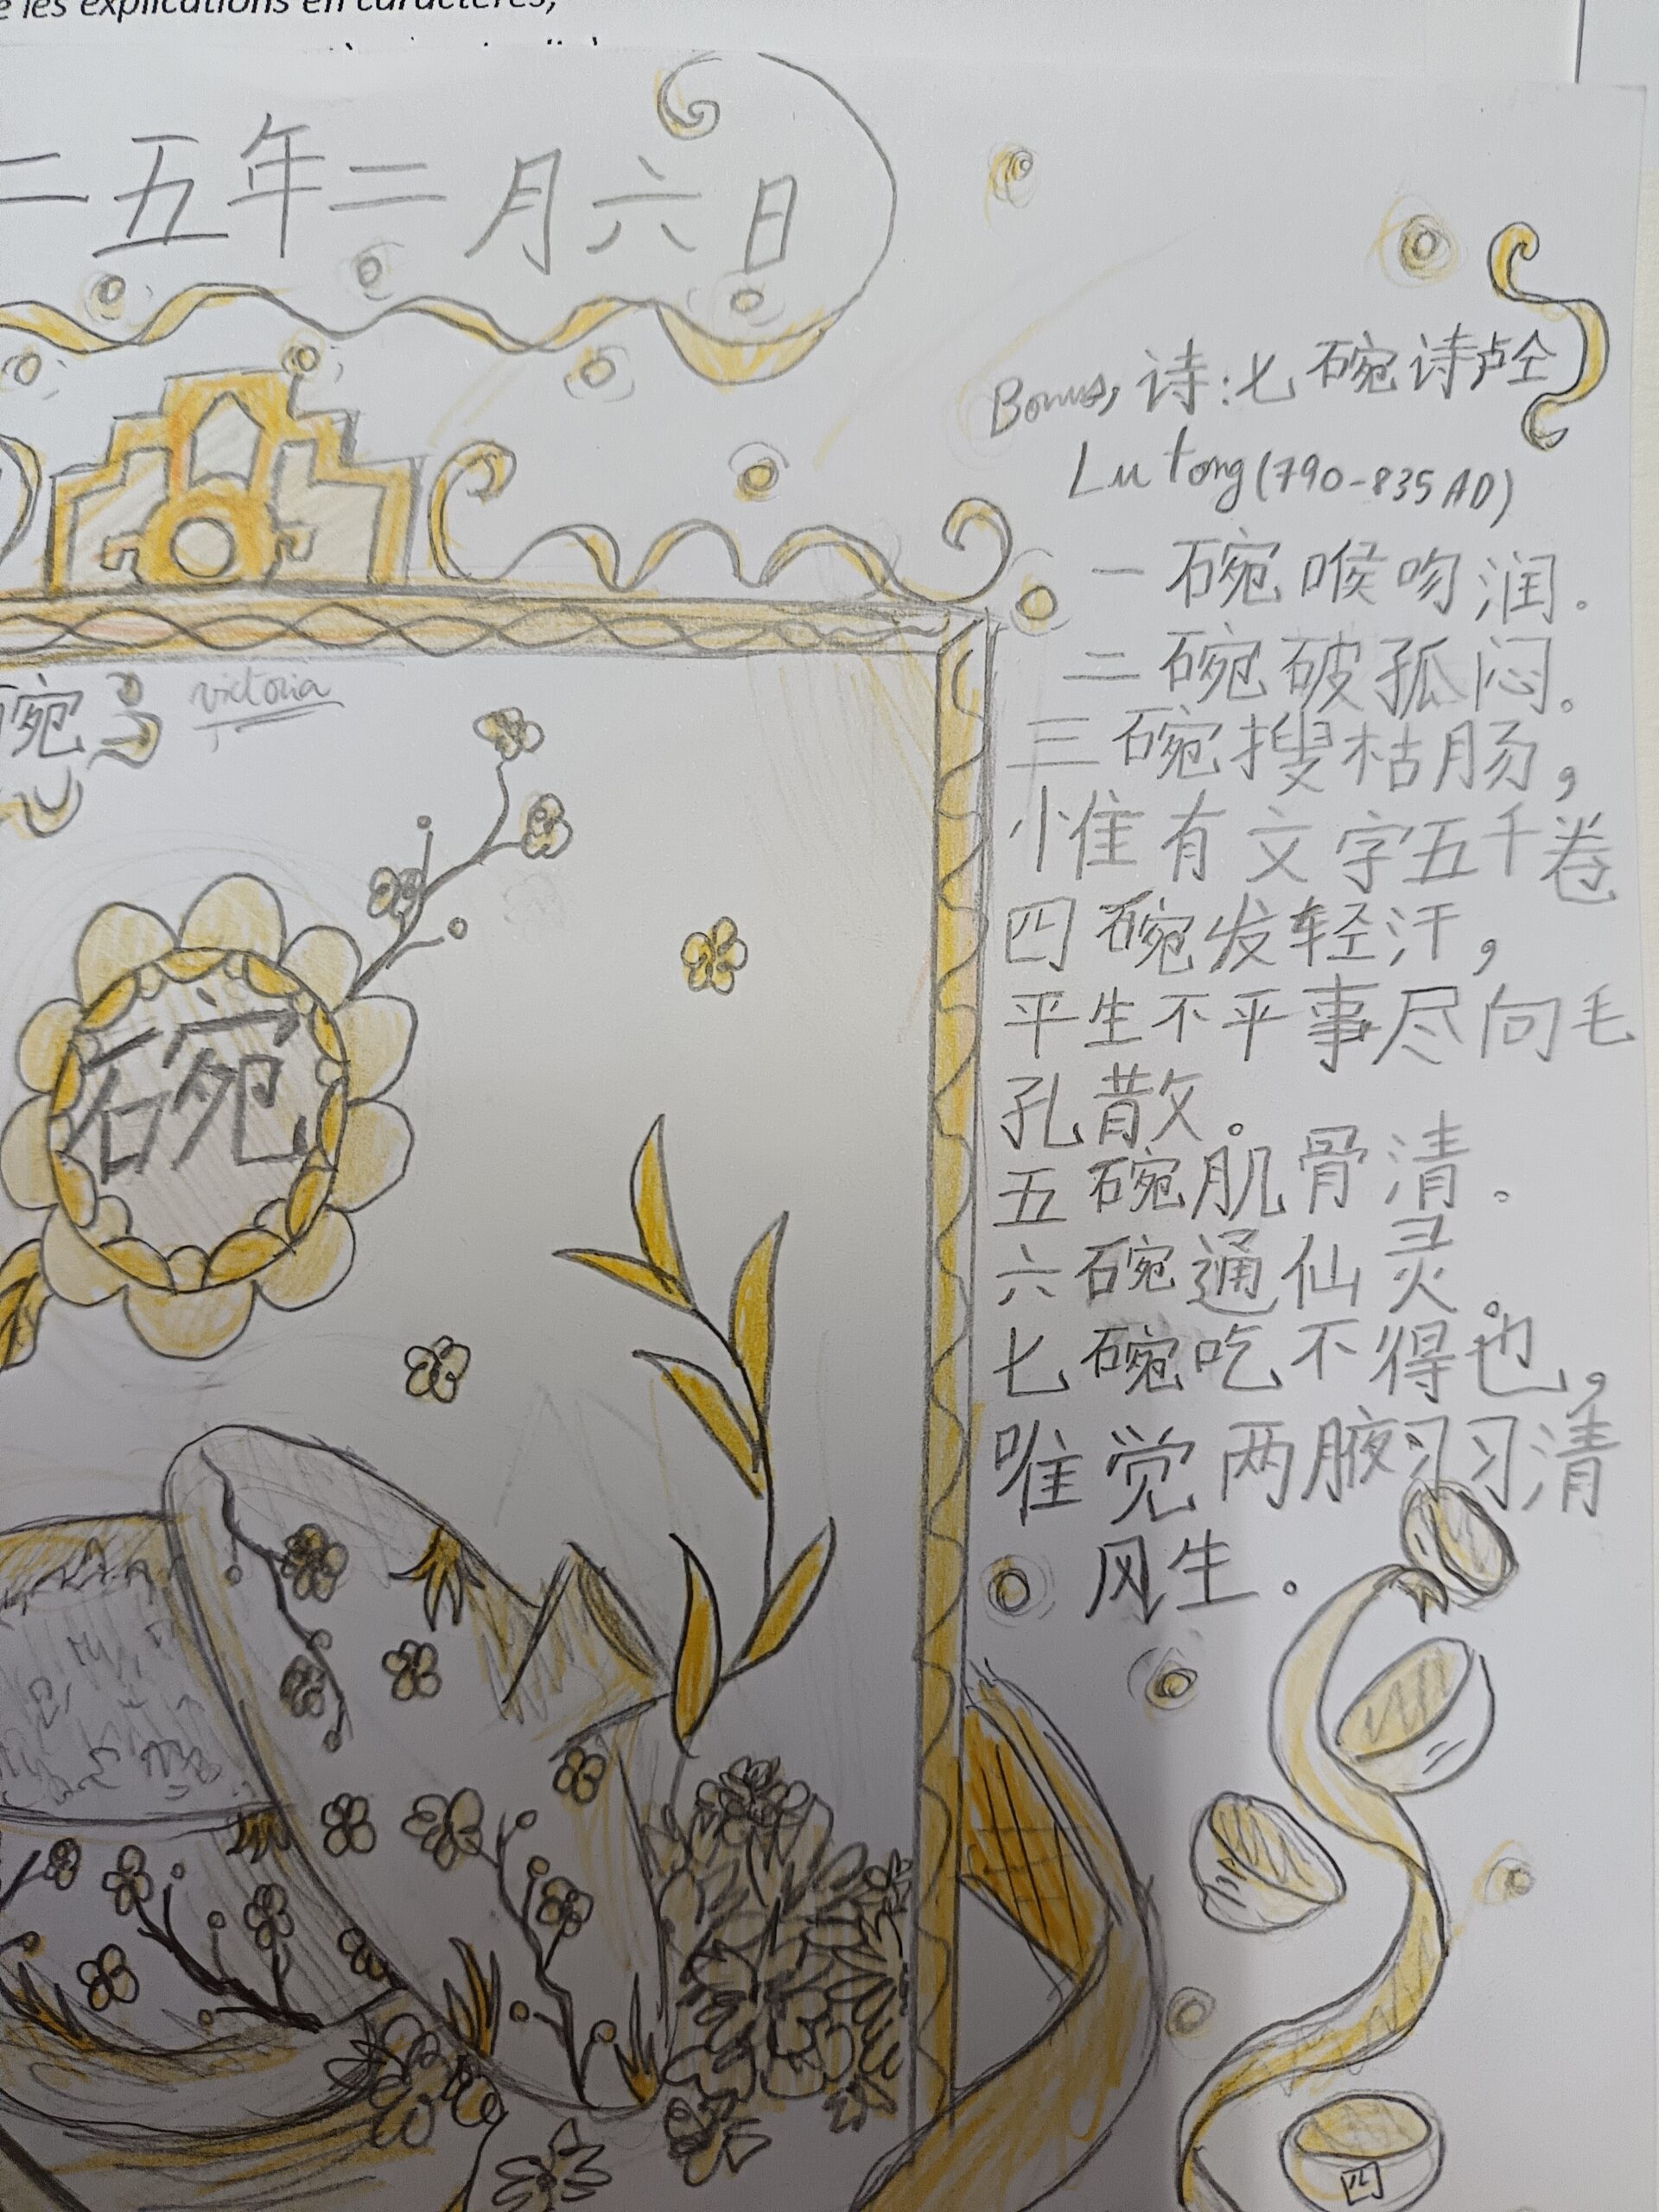 les explications en caractères,
二五年二月六日
Bonus, 诗:七碗诗卢仝
Lu tong (790-835 AD)
一碗喉吻润.
二碗破孤闷。
碗
victoria
三碗搜枯肠,
惟有文字五千卷
四碗发轻汗,
平生不平事尽向毛
碗
孔散。
五碗肌骨清。
六碗通仙灵。
七碗吃不得也,
唯觉两腋习习清
风生.
四